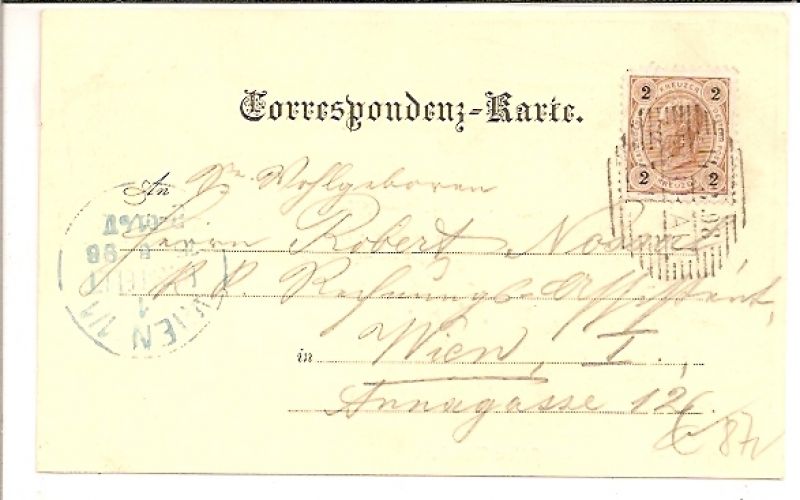 Correspondenz-Karte.
2 KREUZER 2
2 KREUZER 2
An Sr Wohlgeboren
Herrn Robert
K. K. Rechnungs-Assistent,
in Wien, I.,
Annagasse
WIEN 1/1
BESTELLT
8 98